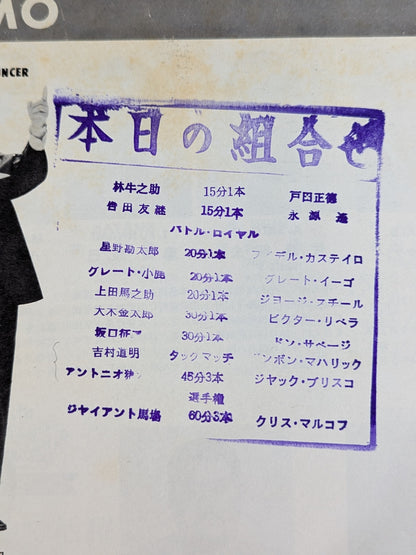 MO
NCER
本日の組合せ
林牛之助 15分1本 戸田正徳
豊田友継 15分1本 永源遙
バトル・ロイヤル
星野勘太郎 20分1本 フィデル・カステイロ
グレート・小鹿 20分1本 グレート・イーゴ
上田馬之助 20分1本 ジョージ・スチール
大木金太郎 30分1本 ビクター・リベラ
坂口征二 30分1本 ドン・サベージ
吉村道明 タッグマッチ ボンボン・マハリック
アントニオ猪木 45分3本 ジャック・ブリスコ
選手権
ジャイアント馬場 60分3本 クリス・マルコフ